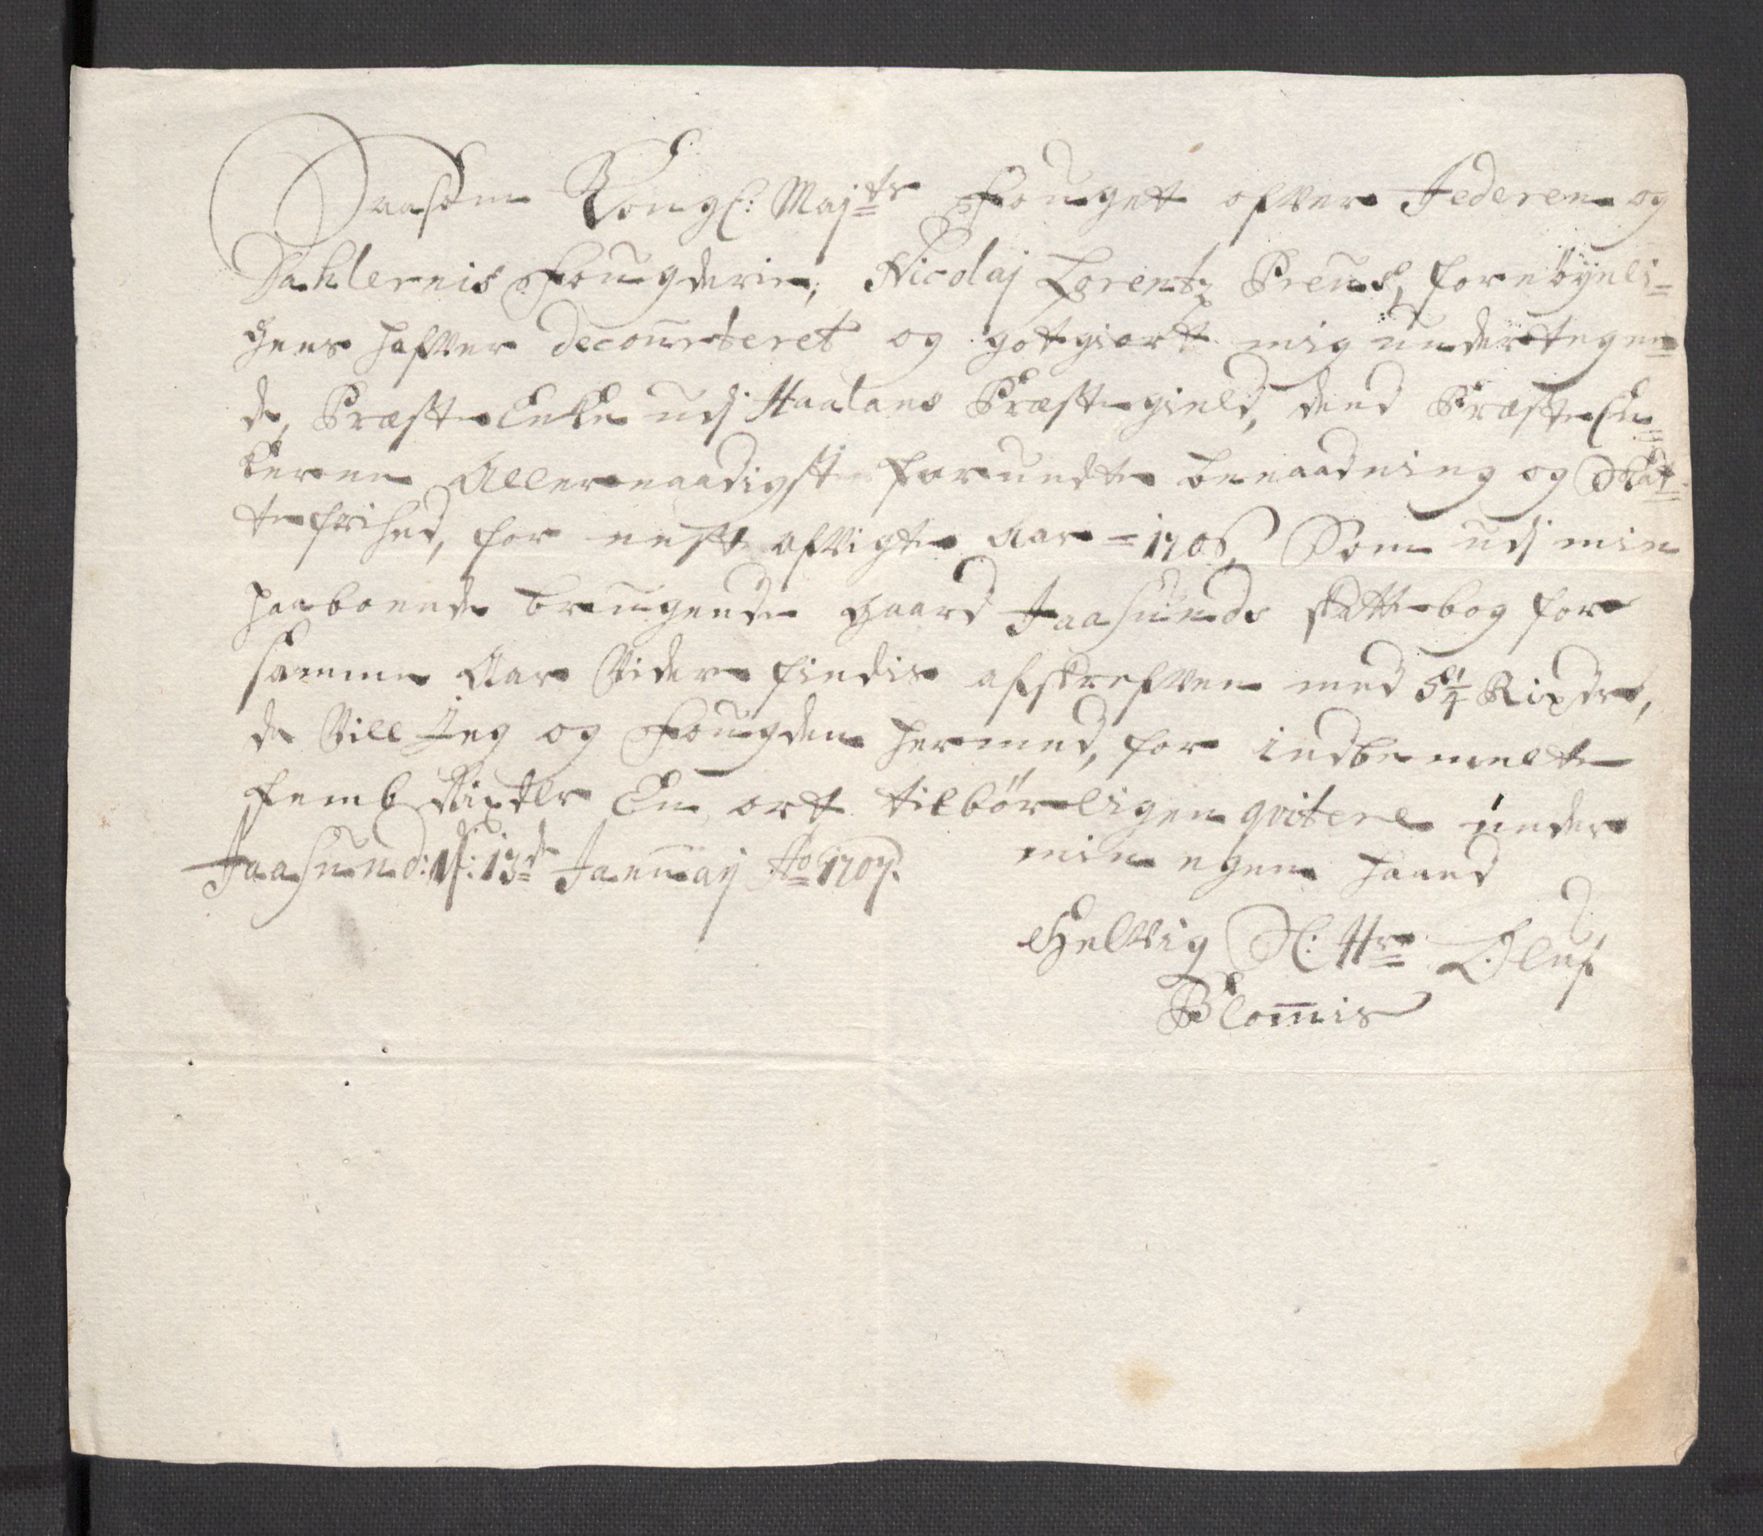 Saasom Kongl: Maj^ts Fouget ofver Jederen og
Dahlernis Fougderie, Nicolaj Lorentz Preus, fornøyeli-
gens hafver decourteret og gotgiort mig undertegen-
de, Præste Enke udj Haalans Præstegield, dend Præste En
kerne Allernaadigste forundte benaadning og Skat-
tefrihed, for nest afvigte Aar - 1706, Som udj min
paaboende brugende Gaard Jaasunds skattebog for
samme Aar Vider findis afskrefven med 5 1/4 Rixdlr,
de Vill Jeg og Fougden hermed, for indbemelte
femb Rixdlr En ort tilbørligen qvitere under
min egen haand
Jaasund: d: 13^de Januarij Ao 1707.
Helvig Sl: Hr Oluf
Blommis